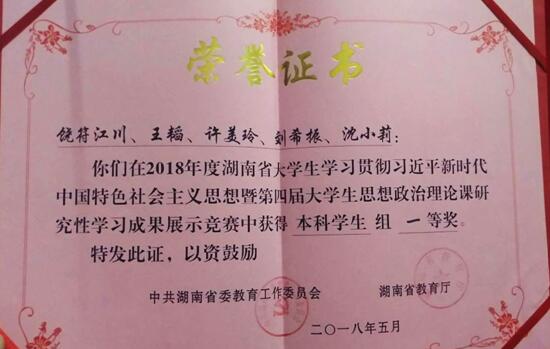 荣誉证书
饶符江川、王韬、许美玲、刘希振、沈小莉：
你们在2018年度湖南省大学生学习贯彻习近平新时代
中国特色社会主义思想暨第四届大学生思想政治理论课研
究性学习成果展示竞赛中获得 本科学生 组 一 等奖。
特发此证，以资鼓励
中共湖南省委教育工作委员会 湖南省教育厅
二〇一八年五月